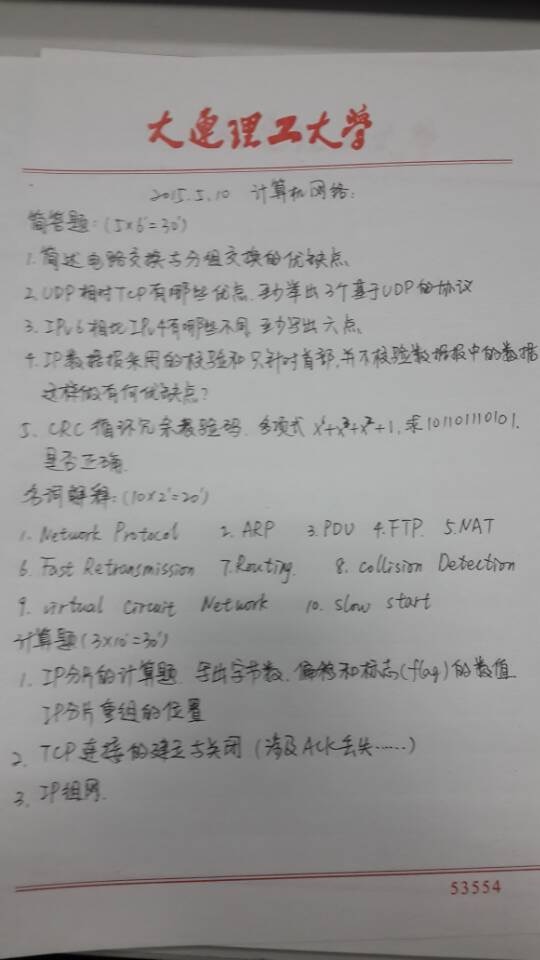 大连理工大学
2015.5.10 计算机网络:
简答题:(5×6'=30')
1. 简述电路交换与分组交换的优缺点.
2. UDP相对TCP有哪些优点.至少举出3个基于UDP的协议
3. IPv6相比IPv4有哪些不同.至少写出六点.
4. IP数据报采用的校验和只针对首部,并不校验数据报中的数据
这样做有何优缺点?
5. CRC循环冗余校验码. 多项式 x⁴+x³+x²+1,求10110110101.
是否正确.
名词解释:(10×2'=20')
1. Network Protocol 2. ARP 3. PDU 4. FTP. 5. NAT
6. Fast Retransmission 7. Routing. 8. collision Detection
9. virtual Circuit Network 10. slow start
计算题(3×10'=30')
1. IP分片的计算题. 写出字节数,偏移和标志(flag)的数值.
IP分片重组的位置
2. TCP连接的建立与关闭(涉及ACK丢失……)
3. IP组网.
53554